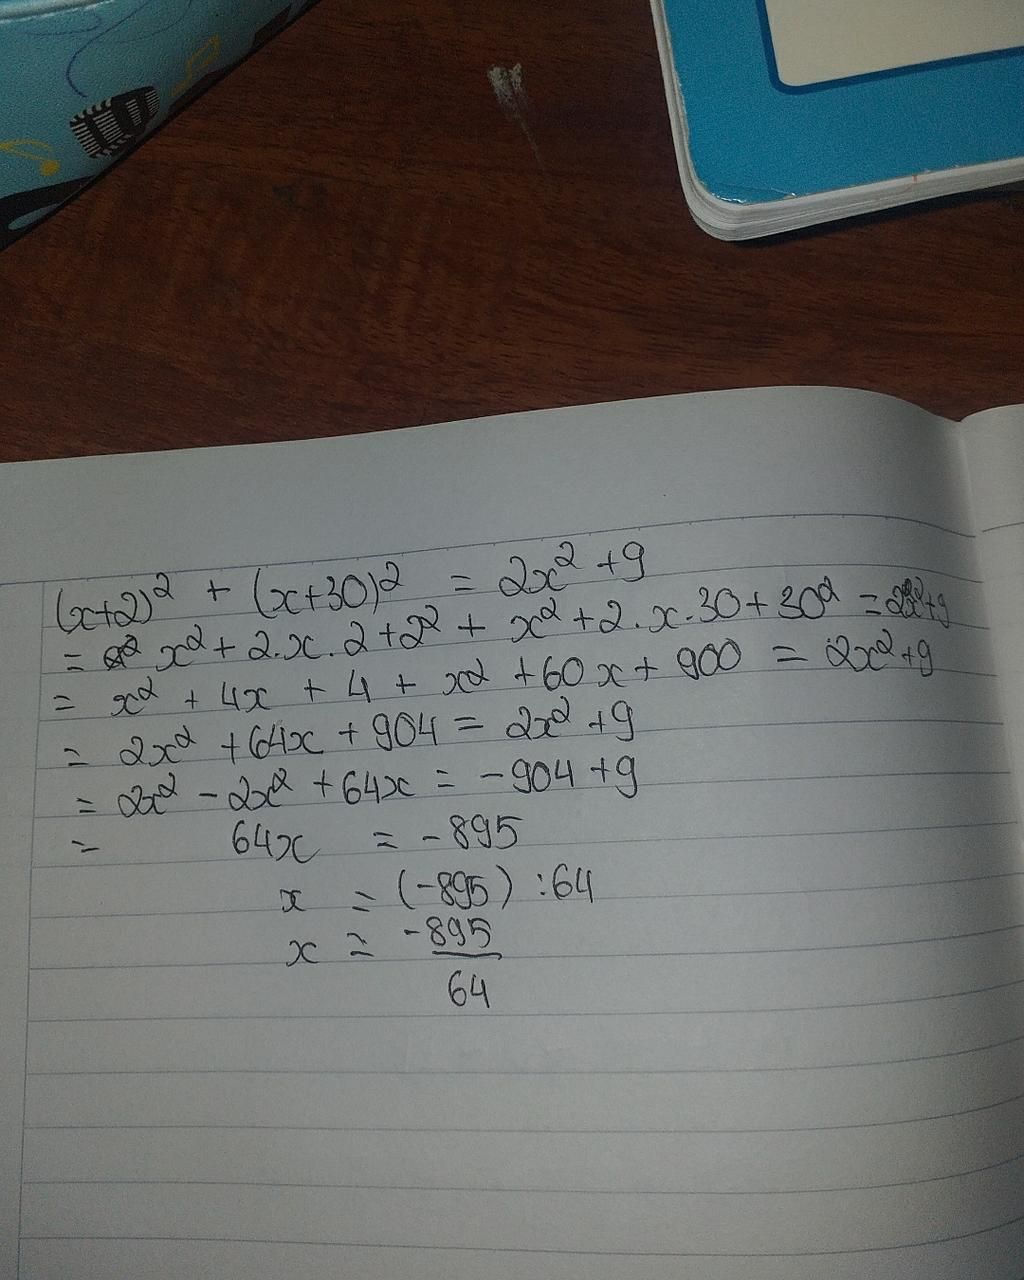 (x+2)² + (x+30)² = 2x² +9
= x² + 2.x.2 +2² + x² +2.x.30+30² = 2x²+9
= x² + 4x + 4 + x² +60x + 900 = 2x²+9
= 2x² +64x + 904 = 2x² +9
= 2x² - 2x² +64x = -904 +9
= 64x = -895
x = (-895) :64
x = -895
64